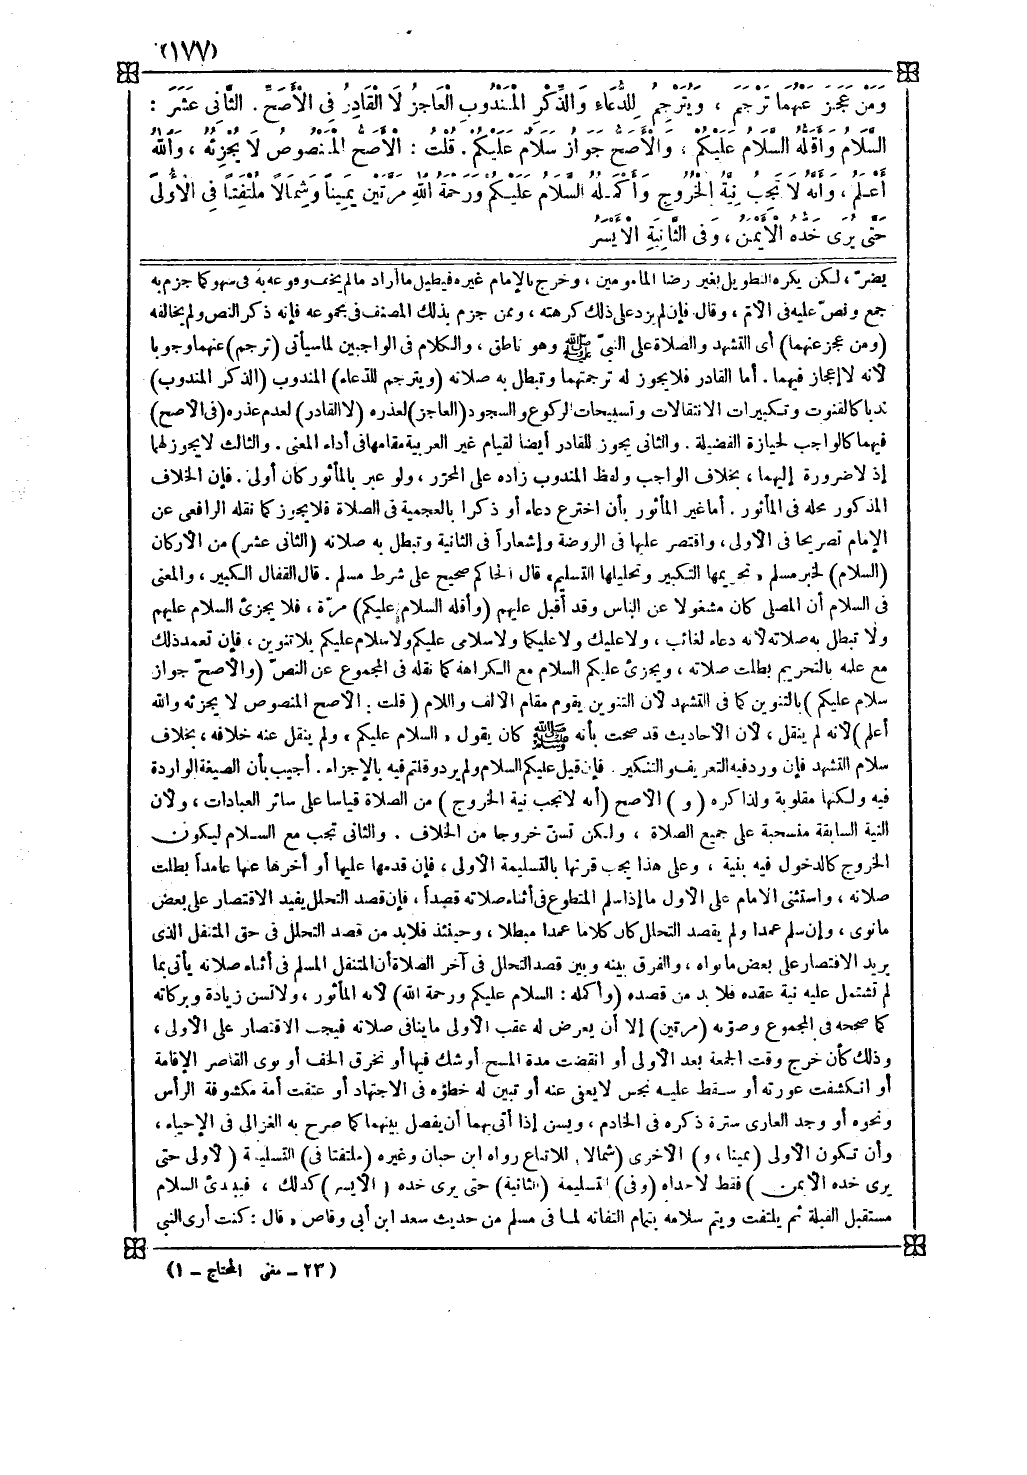 (١٧٧)
وَمَنْ عَجَزَ عَنْهُمَا تَرْجَمَ ، وَيُتَرْجِمُ لِلدُّعَاءِ وَالذِّكْرِ الْمَنْدُوبِ الْعَاجِزُ لَا الْقَادِرُ فِى الْأَصَحِّ . الثَّانِى عَشَرَ :
السَّلَامُ وَأَقَلُّهُ السَّلَامُ عَلَيْكُمْ ، وَالْأَصَحُّ جَوَازُ سَلَامٌ عَلَيْكُمْ . قُلْتُ : الْأَصَحُّ الْمَنْصُوصُ لَا يُجْزِئُهُ ، وَاللهُ
أَعْلَمُ ، وَأَنَّهُ لَا تَجِبُ نِيَّةُ الْخُرُوجِ وَأَكْمَلُهُ السَّلَامُ عَلَيْكُمْ وَرَحْمَةُ اللهِ مَرَّتَيْنِ يَمِينًا وَشِمَالًا مُلْتَفِتًا فِى الْأُولَى
حَتَّى يُرَى خَدُّهُ الْأَيْمَنُ ، وَفِى الثَّانِيَةِ الْأَيْسَرُ
يضرّ ، لكن يكره التطويل بغير رضا المأمومين ، وخرج بالإمام غيره فيطيل ما أراد ما لم يخف وقوعه به فى سهو كما جزم به
جمع ونص عليه فى الأم ، وقال فإن لم يزد على ذلك كرهته ، وممن جزم بذلك المصنف فى مجموعه فإنه ذكر النص ولم يخالفه
(ومن عجز عنهما) أى التشهد والصلاة على النبىّ ﷺ وهو ناطق ، والكلام فى الواجبين لما سيأتى (ترجم) عنهما وجوبا
لأنه لا إعجاز فيهما . أما القادر فلا يجوز له ترجمتهما وتبطل به صلاته (ويترجم للدعاء) المندوب (الذكر المندوب)
ندبا كالقنوت وتكبيرات الانتقالات وتسبيحات الركوع والسجود (العاجز) لعذره (لا القادر) لعدم عذره (فى الأصح)
فيهما كالواجب لحيازة الفضيلة . والثانى يجوز للقادر أيضا لقيام غير العربية مقامها فى أداء المعنى . والثالث لا يجوز لهما
إذ لا ضرورة إليهما ، بخلاف الواجب ولفظ المندوب زاده على المحرّر ، ولو عبر بالمأثور كان أولى . فإن الخلاف
المذكور محله فى المأثور . أما غير المأثور بأن اخترع دعاء أو ذكرا بالعجمية فى الصلاة فلا يجوز كما نقله الرافعى عن
الإمام تصريحا فى الأولى ، واقتصر عليها فى الروضة وإشعاراً فى الثانية وتبطل به صلاته (الثانى عشر) من الأركان
(السلام) لخبر مسلم « تحريمها التكبير وتحليلها التسليم» قال الحاكم صحيح على شرط مسلم . قال القفال الكبير ، والمعنى
فى السلام أن المصلى كان مشغولا عن الناس وقد أقبل عليهم (وأقله السلام عليكم) مرّة ، فلا يجزئ السلام عليهم
ولا تبطل به صلاته لأنه دعاء لغائب ، ولا عليك ولا عليكما ولا سلامى عليكم ولا سلام عليكم بلا تنوين ، فإن تعمد ذلك
مع علمه بالتحريم بطلت صلاته ، ويجزئ عليكم السلام مع الكراهة كما نقله فى المجموع عن النصّ (والأصحّ جواز
سلام عليكم) بالتنوين كما فى التشهد لأن التنوين يقوم مقام الألف واللام (قلت : الأصح المنصوص لا يجزئه والله
أعلم) لأنه لم ينقل ، لأن الأحاديث قد صحت بأنه ﷺ كان يقول « السلام عليكم » ولم ينقل عنه خلافه ، بخلاف
سلام التشهد فإن ورد فيه التعريف والتنكير . فإن قيل عليكم السلام ولم يرد وقلتم فيه بالإجزاء . أجيب بأن الصيغة الواردة
فيه ولكنها مقلوبة ولذا كره (و) الأصح (أنه لا تجب نية الخروج) من الصلاة قياسا على سائر العبادات ، ولأن
النية السابقة منسحبة على جميع الصلاة ، ولكن تسنّ خروجا من الخلاف . والثانى تجب مع السلام ليكون
الخروج كالدخول فيه بنية ، وعلى هذا يجب قرنها بالتسليمة الأولى ، فإن قدمها عليها أو أخرها عنها عامداً بطلت
صلاته ، واستثنى الإمام على الأول ما إذا سلم المتطوع فى أثناء صلاته قصداً ، فإن قصد التحلل يفيد الاقتصار على بعض
ما نوى ، وإن سلم عمدا ولم يقصد التحلل كان كلاما عمدا مبطلا ، وحينئذ فلابد من قصد التحلل فى حق المتنفل الذى
يريد الاقتصار على بعض ما نواه ، والفرق بينه وبين قصد التحلل فى آخر الصلاة أن المتنفل المسلم فى أثناء صلاته يأتى بما
لم تشتمل عليه نية عقده فلا بد من قصده (وأكمله : السلام عليكم ورحمة الله) لأنه المأثور ، ولا تسن زيادة وبركاته
كما صححه فى المجموع وصوّبه (مرتين) إلا أن يعرض له عقب الأولى ما ينافى صلاته فيجب الاقتصار على الأولى ،
وذلك كأن خرج وقت الجمعة بعد الأولى أو انقضت مدة المسح أو شك فيها أو تخرق الخف أو نوى القاصر الإقامة
أو انكشفت عورته أو سقط عليه نجس لا يعفى عنه أو تبين له خطؤه فى الاجتهاد أو عتقت أمة مكشوفة الرأس
ونحوه أو وجد العارى سترة ذكره فى الخادم ، ويسن إذا أتى بهما أن يفصل بينهما كما صرح به الغزالى فى الإحياء ،
وأن تكون الأولى (يمينا ، و) الأخرى (شمالا) للاتباع رواه ابن حبان وغيره (ملتفتا فى) التسليمة (الأولى حتى
يرى خده الأيمن) فقط لا خداه (وفى) التسليمة (الثانية) حتى يرى خده (الأيسر) كذلك ، فيبدئ السلام
مستقبل القبلة ثم يلتفت ويتم سلامه بتمام التفاته لما فى مسلم من حديث سعد ابن أبى وقاص « قال : كنت أرى النبى
(٢٣ – مغنى المحتاج – ١)